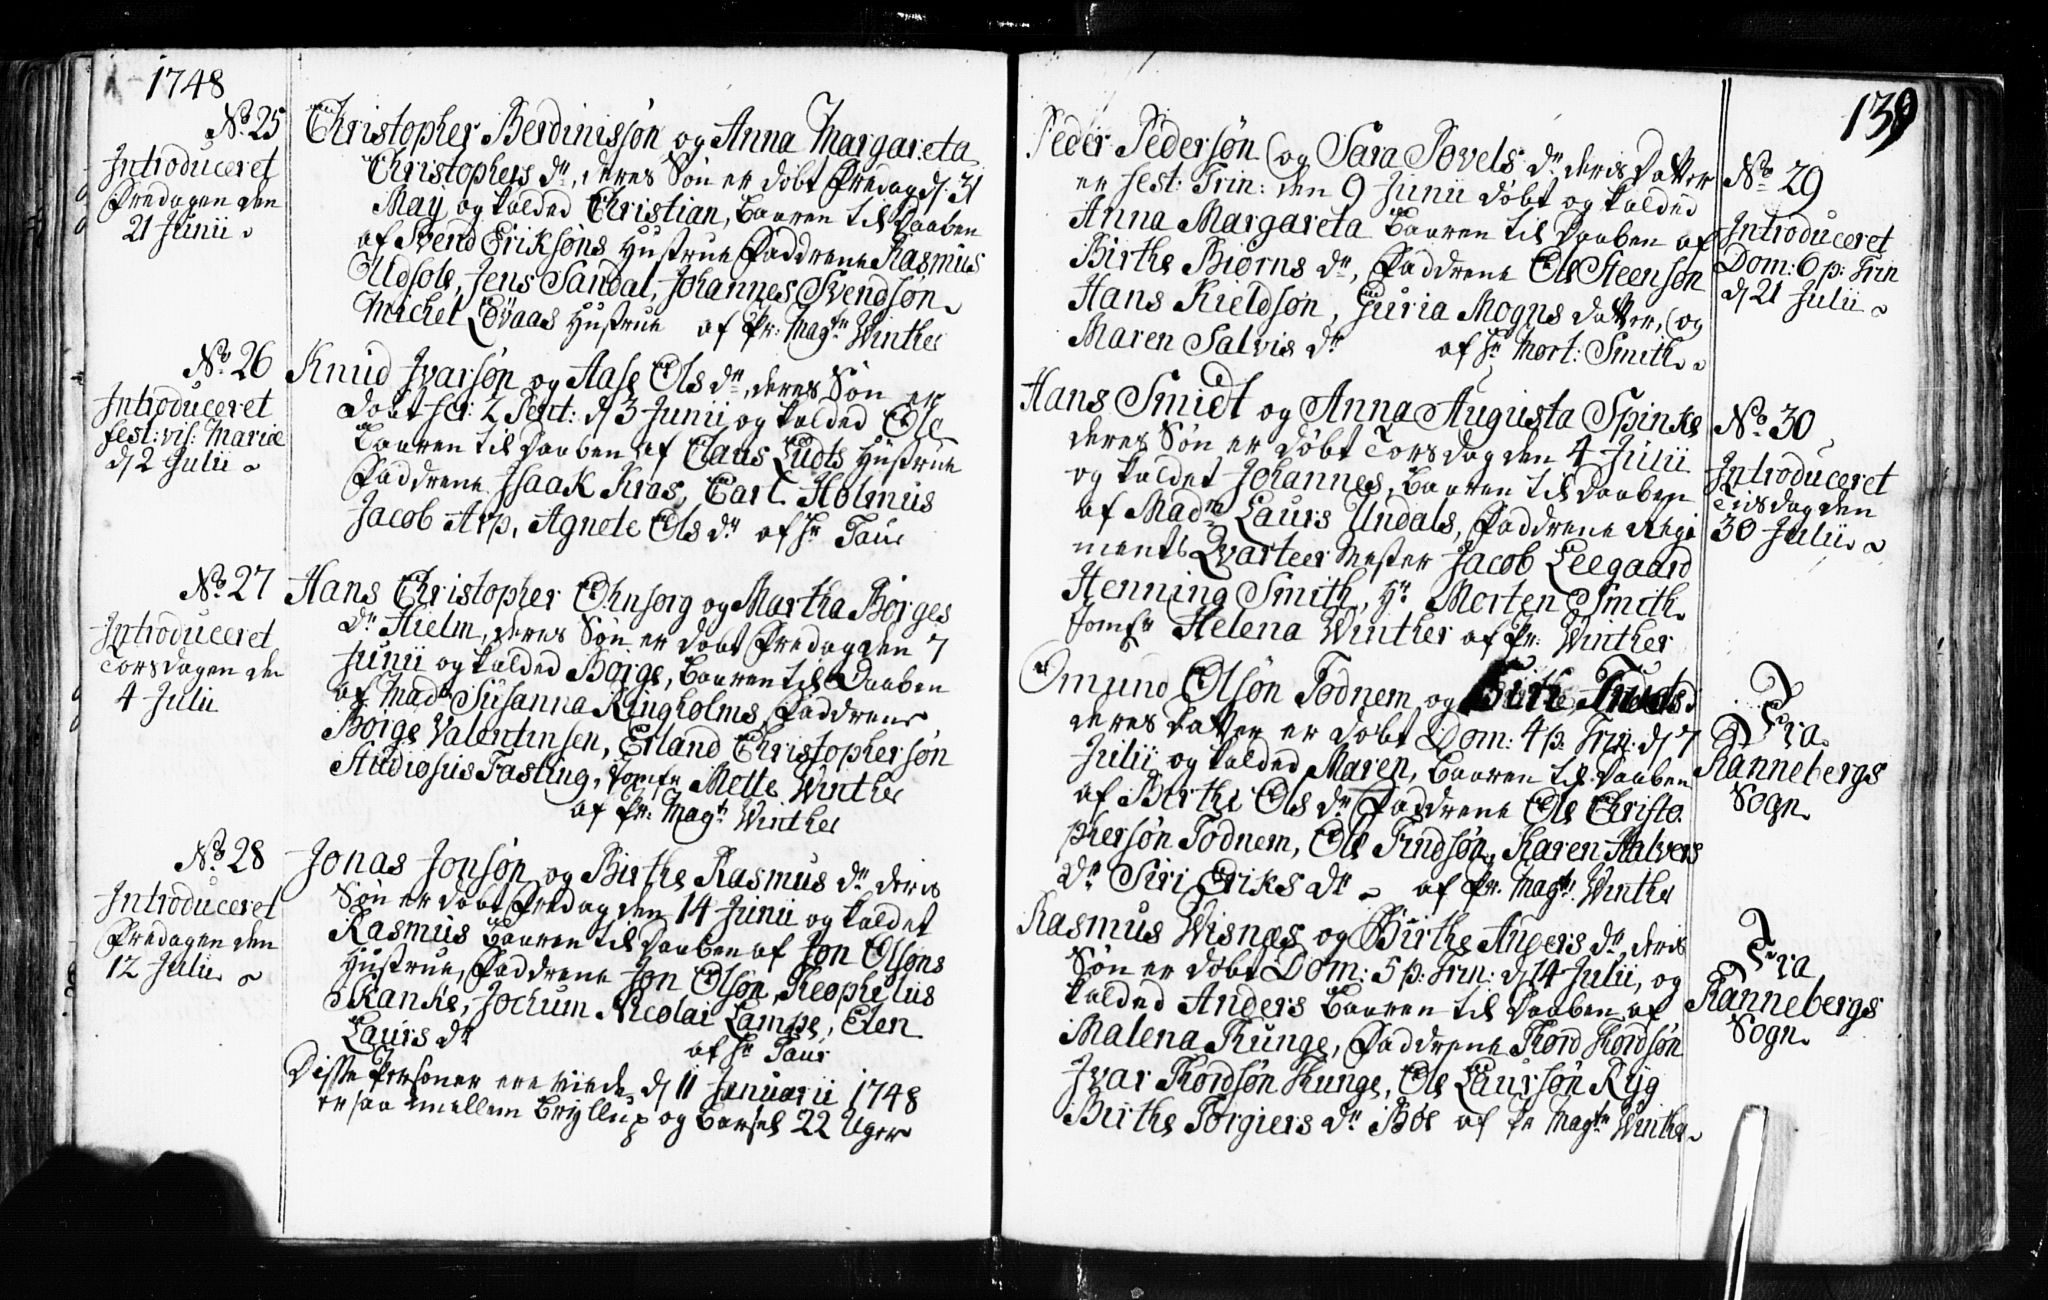 1748
No 25
Introduceret
Fredagen den
21 Junii
Christopher Berdinissøn og Anna Margareta
Christophers dr, deres Søn er døbt Fredag d: 31
Maij og kalded Christian, Baaren til Daaben
af Svend Eriksøns Hustrue Faddrene Rasmus
Udsole, Jens Sandal, Johannes Svendsøn
Michel Løvaas Hustrue af Pr: Magtr Winther
No 26
Introduceret
fest: vis: Mariæ
d 2 Julii
Knud Jvarsøn og Aase Ols dr, deres Søn er
døbt fer: 2 Pent: d 3 Junii og kalded Ole
Baaren til Daaben af Claus Ludts Hustrue
Faddrene Isaak Kras, Carl Holmus
Jacob Arp, Agnete Ols dr af Hr Faur
No 27
Introduceret
Torsdagen den
4 Julii
Hans Christopher Ohnsorg og Martha Børges
dr Hielm, deres Søn er døbt Fredag den 7
Junii og kalded Børge, Baaren til Daaben
af Mad Susanna Ringholms Faddrene
Børge Valentinsen, Erland Christophersøn
Studiosus Fasting, Jomfr Mette Winther
af Pr: Magtr Winther
No 28
Introduceret
Fredagen den
12 Julii
Jonas Jonsøn og Birthe Rasmus dr deris
Søn er døbt Fredag den 14 Junii og kaldet
Rasmus Baaren til Daaben af Jon Olsøns
Hustrue, Faddrene Jon Olsøn, Theophilus
Skanke, Jochum Nicolai Lampe, Elen
Laurs dr af Hr Faur
Disse Personer ere viede d 11 Januarii 1748
er saa mellem Bryllup og Barsel 22 Uger
139
Peder Pedersøn og Sara Povels dr deris Datter
er fest: Trin: den 9 Junii døbt og kalded
Anna Margareta Baaren til Daaben af
Birthe Biørns dr, Faddrene Ole Steensøn
Hans Kieldsøn, Guria Mogns datter, og
Maren Salvis dr af Hr Mort: Smith
No 29
Introduceret
Dom: 6 p: Trin
d 21 Julii
Hans Smidt og Anna Augusta Spinke
deres Søn er døbt Torsdag den 4 Julii
og kaldet Johannes, Baaren til Daaben
af Madme Laurs Undals, Faddrene Regi
ments Qvarteer Mester Jacob Leegaard
Henning Smith, Hr Morten Smith
Jomfr Helena Winther af Pr: Winther
No 30
Introduceret
Tisdag den
30 Julii
Omund Olsøn Todnem og Siri
deres Datter er døbt Dom: 4 p: Trin: d 7
Julii og kalded Maren, Baaren til Daaben
af Birthe Ols dr Faddrene Ole Christo
phersøn Todnem, Ole Findsøn, Karen Halvers
dr Siri Eriks dr af Pr: Magtr Winther
Fra
Rannebergs
Sogn
Rasmus Wisnæs og Birthe Anders dr deris
Søn er døbt Dom: 5 p: Trin: d 14 Julii, og
kalded Anders Baaren til Daaben af
Malena Runge, Faddrene Thord Thordsøn
Jvar Thordsøn Runge, Ole Laursøn Ryg
Birthe Torgiers dr Bøe af Pr Magtr Winther
Fra
Rannebergs
Sogn